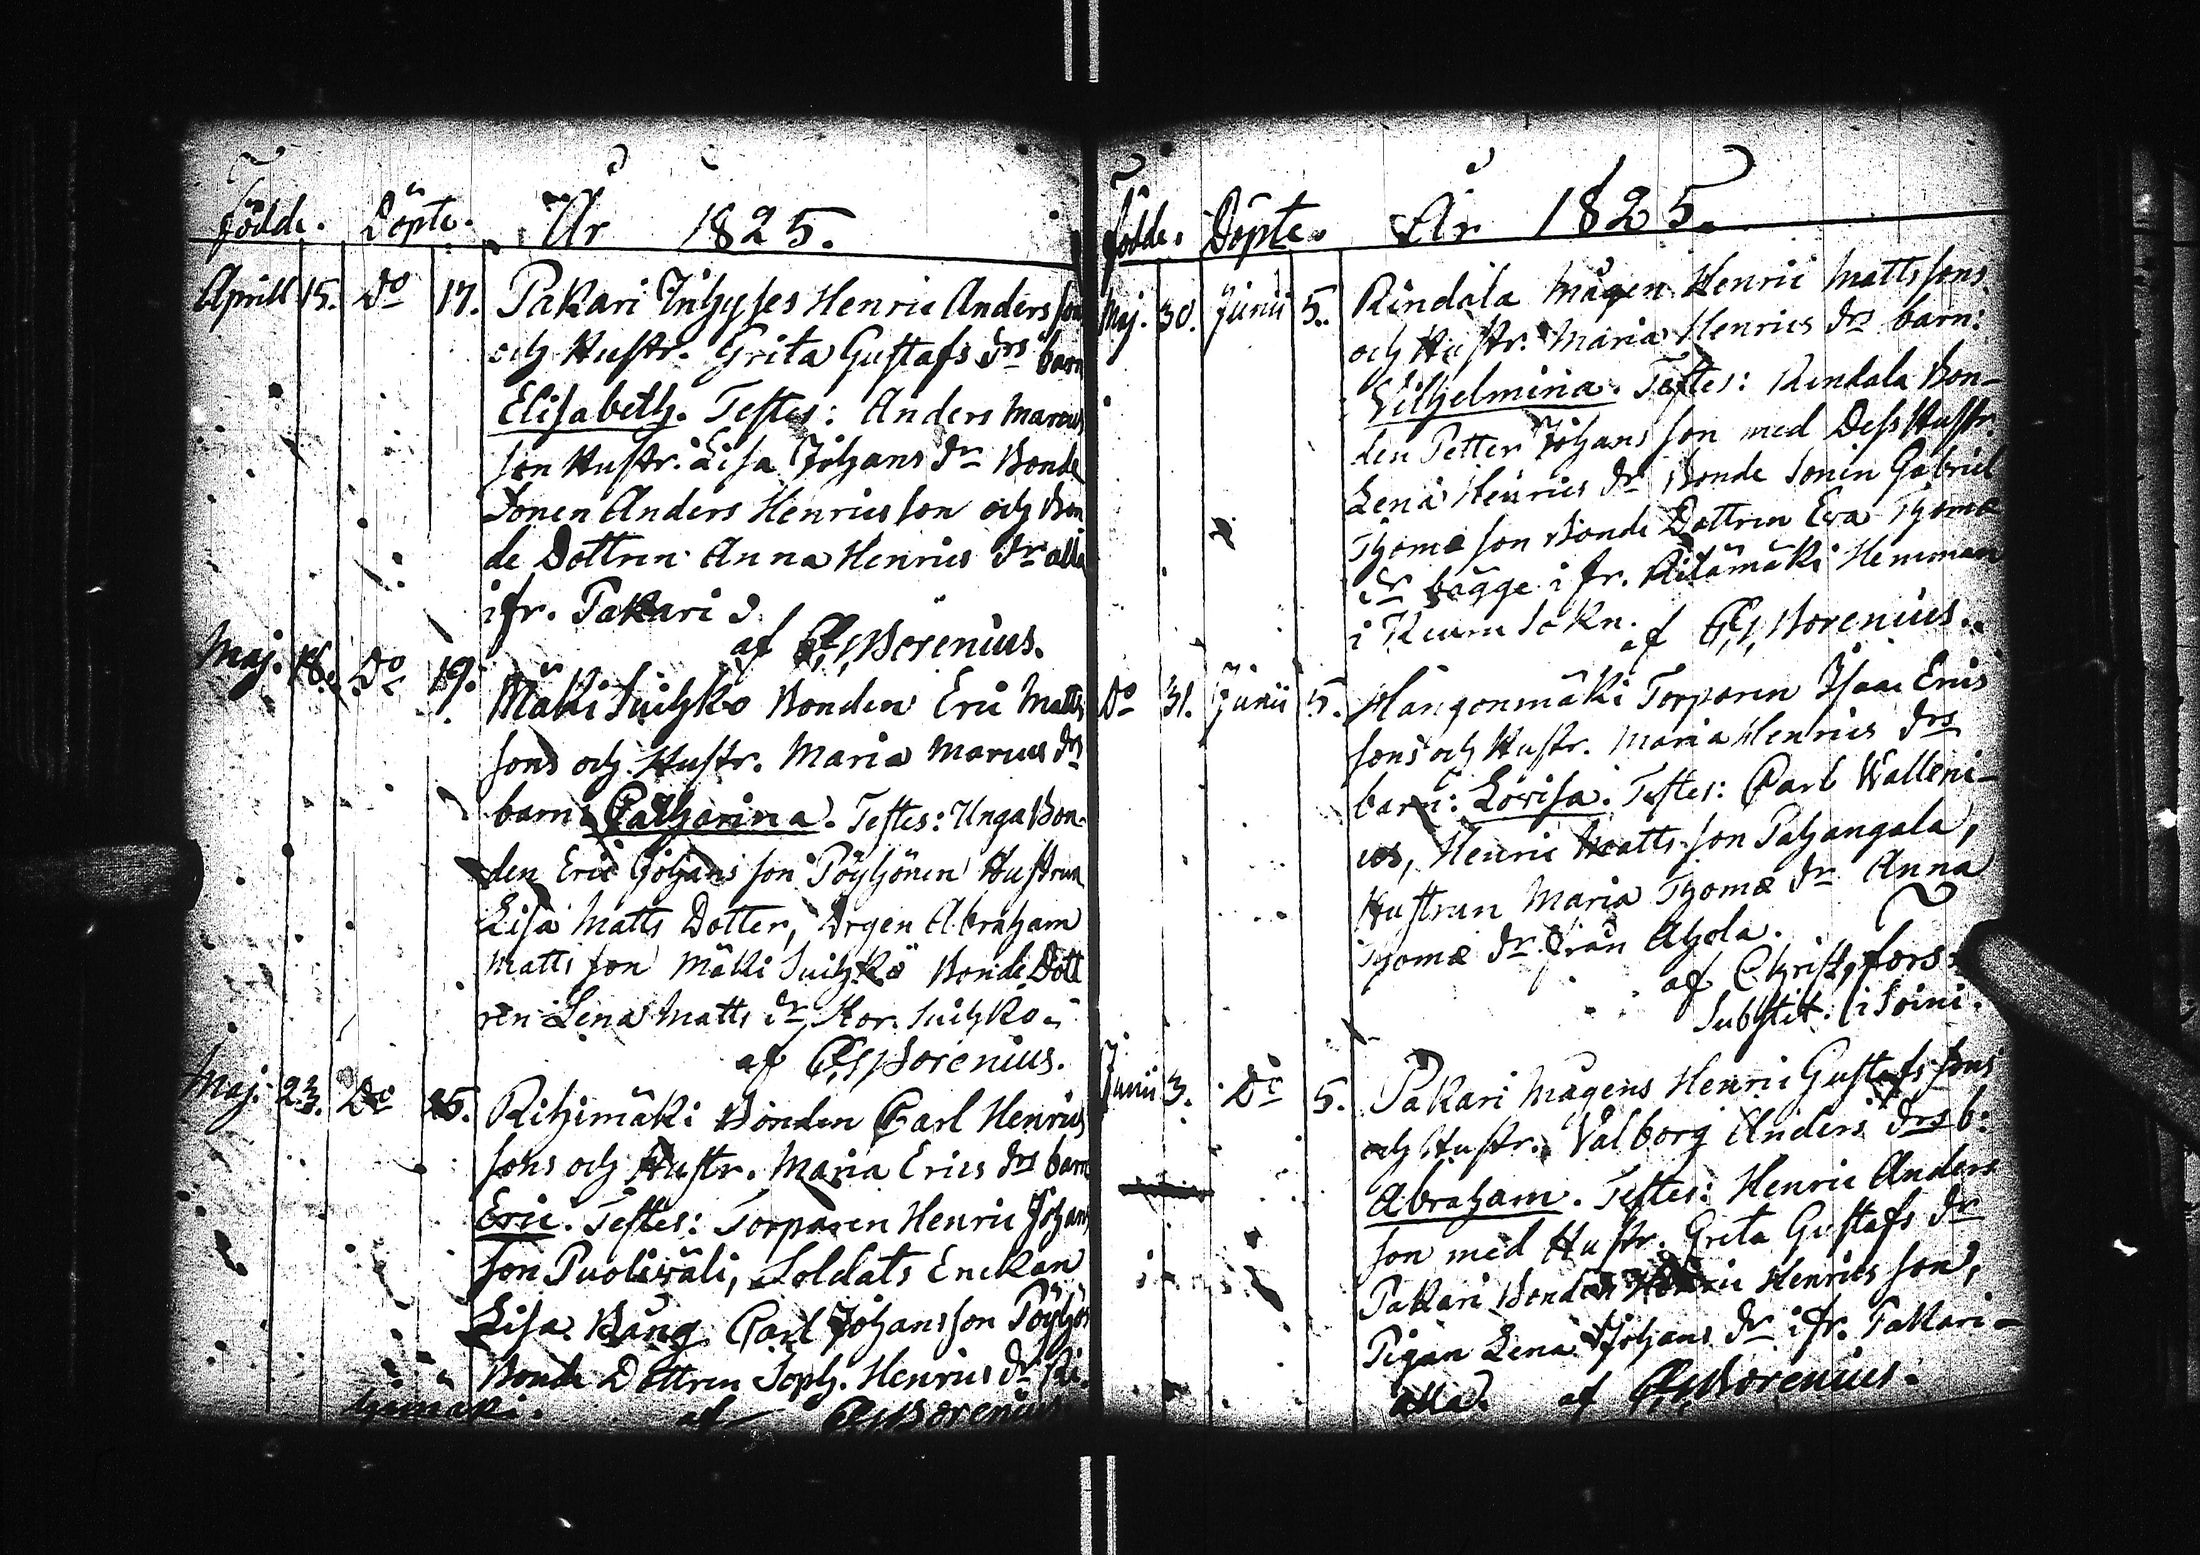 Födde. Döpte. År 1825.
Aprill 15. Do 17. Pakari Inhyses Henric Andersson
och Hustr. Grita Gustafs drs barn
Elisabeth. Testes: Anders Marcus
son Hustr. Lisa Johans dr Bonde
Sonen Anders Henricsson och Bon
de Dottren Anna Henrics dr alla
ifr. Pakari
af C. G. Borenius.
Maj. 18. Do 19. Mäki Suihko Bonden Eric Matts
sons och Hustr. Maria Marcus drs
barn Catharina. Testes: Unga Bon-
den Eric Johansson Pöyhönen Hustrun
Lisa Matts Dotter, Drgen Abraham
Mattsson Mäki Suihko Bonde Dött
ren Lena Matts dr Stor Suihko
af Borenius.
Maj. 23. Do 25. Rihimäki Bonden Carl Henrics
sons och Hustr. Maria Erics drs barn
Eric. Testes: Torparen Henric Johans
son Puoliväli, Soldats Enckan
Lisa Bång Carl Johansson Pöyhön
Bonde Dottren Soph. Henrics dr Ri-
himäki. af Borenius
Födde. Döpte. År 1825.
Maj. 30. Junii 5. Rindala Mågen Henric Mattssons
och Hustr. Maria Henrics drs barn:
Vilhelmina. Testes: Rindala Bon-
den Petter Johansson med Dess Hustr.
Lena Henrics dr Bonde Sonen Gabriel
Thomæ son Bonde Dottren Eva Thomæ
dr bägge i fr. Ritämäki Hemman
i Kuurn Sokn. af Borenius.
Do 31. Junii 5. Hangonmäki Torparen Isaac Erics
sons och Hustr. Maria Henrics drs
barn: Lovisa. Testes: Carl Walleni-
us, Henric Mattsson Pahangala,
Hustrun Maria Thomæ dr Anna
Thomæ dr från Ahola.
af Christ. fors
Substit. i Soini.
Junii 3. Do 5. Pakari Mågens Henric Gustafs sons
och Hustr. Valborg Anders drs b:
Abraham. Testes: Henric Anders
son med Hustr. Greta Gustafs dr
Pakari Bonden Henric Henrics son,
Pigan Lena Johans dr ifr. Pakari
alla. af Borenius.